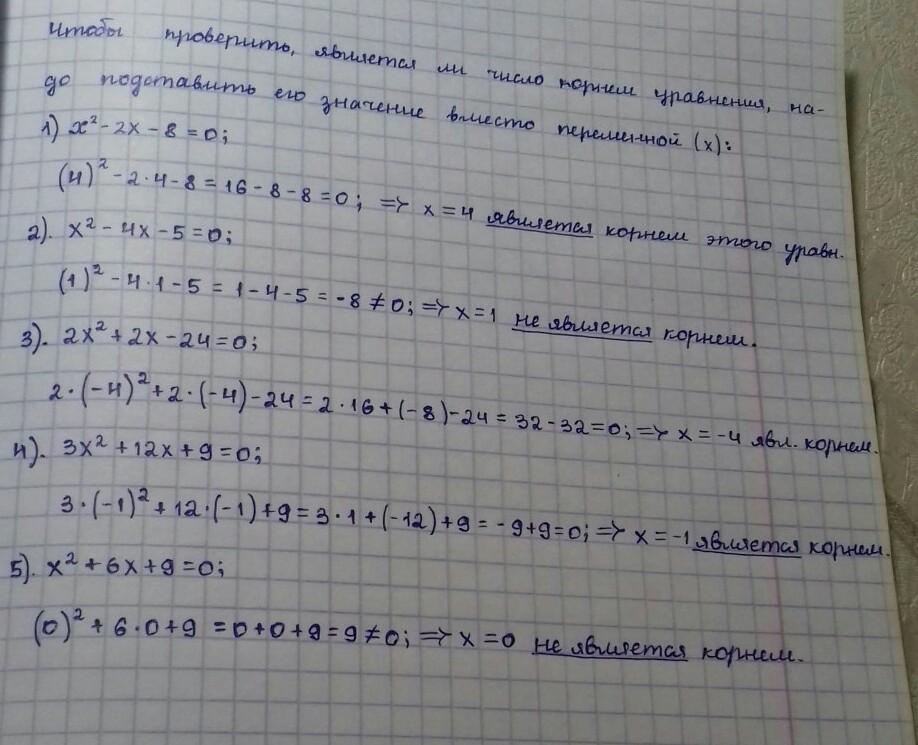 Чтобы проверить, является ли число корнем уравнения, на-
до подставить его значение вместо переменной (x):
1) x² - 2x - 8 = 0;
(4)² - 2·4 - 8 = 16 - 8 - 8 = 0; => x = 4 является корнем этого уравн.
2). x² - 4x - 5 = 0;
(1)² - 4·1 - 5 = 1 - 4 - 5 = -8 ≠ 0; => x = 1 не является корнем.
3). 2x² + 2x - 24 = 0;
2·(-4)² + 2·(-4) - 24 = 2·16 + (-8) - 24 = 32 - 32 = 0; => x = -4 явл. корнем.
4). 3x² + 12x + 9 = 0;
3·(-1)² + 12·(-1) + 9 = 3·1 + (-12) + 9 = -9 + 9 = 0; => x = -1 является корнем.
5). x² + 6x + 9 = 0;
(0)² + 6·0 + 9 = 0 + 0 + 9 = 9 ≠ 0; => x = 0 не является корнем.